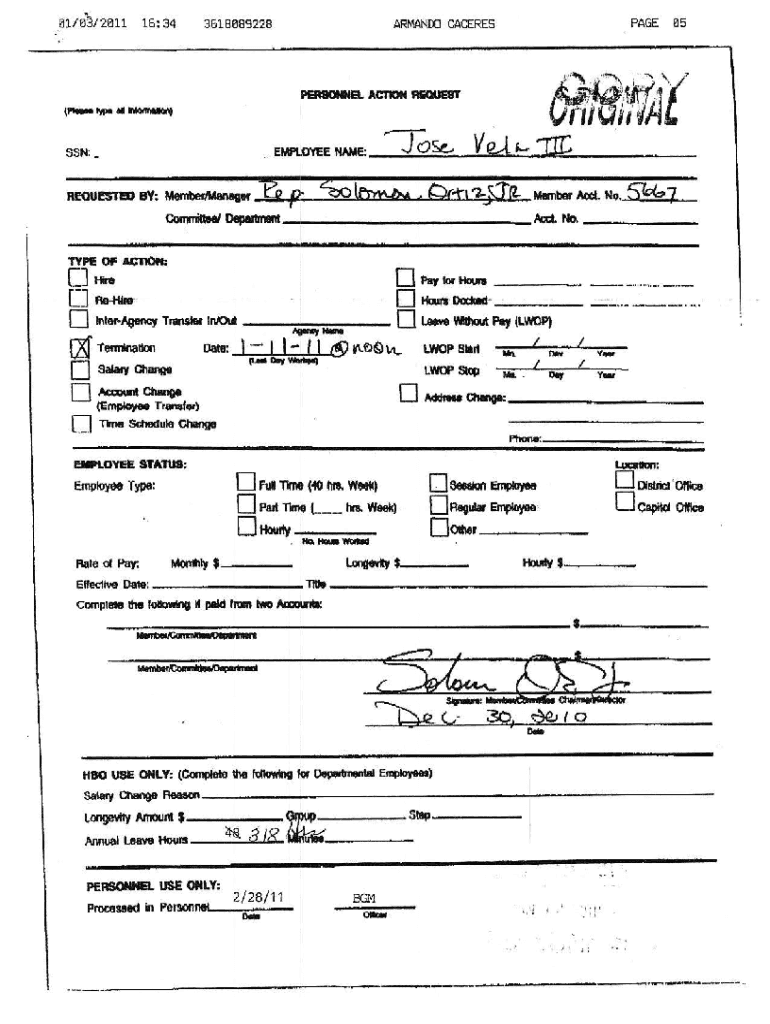 01/03/2011 16:34 3618089228 ARMANDO CACERES PAGE 05
COPY
ORIGINAL
PERSONNEL ACTION REQUEST
(Please type all information)
SSN: EMPLOYEE NAME: Jose Vela III
REQUESTED BY: Member/Manager Rep. Solomon Ortiz, JR Member Acct. No. 5667
Committee/ Department Acct. No.
TYPE OF ACTION:
Hire Pay for Hours
Re-Hire Hours Docked
Inter-Agency Transfer In/Out Leave Without Pay (LWOP)
Agency Name
X Termination Date: 1-11-11 @ noon LWOP Start / /
(Last Day Worked) Mo. Day Year
Salary Change LWOP Stop / /
Mo. Day Year
Account Change Address Change:
(Employee Transfer)
Time Schedule Change
Phone:
EMPLOYEE STATUS: Location:
Employee Type: Full Time (40 hrs. Week) Session Employee District Office
Part Time (____ hrs. Week) Regular Employee Capitol Office
Hourly Other
No. Hours Worked
Rate of Pay: Monthly $ Longevity $ Hourly $
Effective Date: Title
Complete the following if paid from two Accounts:
$
Member/Committee/Department
$
Member/Committee/Department
Signature: Member/Committee Chairman/Director
Dec. 30, 2010
Date
HBO USE ONLY: (Complete the following for Departmental Employees)
Salary Change Reason
Longevity Amount $ Group Step
Annual Leave Hours 318 Minutes
PERSONNEL USE ONLY:
Processed in Personnel 2/28/11 BGM
Date Officer